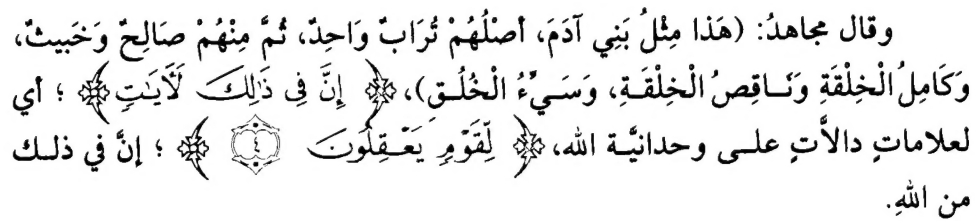 وقال مجاهدُ: (هَذَا مِثْلُ بَنِي آدَمَ، أصْلُهُمْ تُرَابٌ وَاحِدٌ، ثُمَّ مِنْهُمْ صَالِحٌ وَخَبِيثٌ،
وَكَامِلُ الْخِلْقَةِ وَنَـاقِصُ الْخِلْقَـةِ، وَسَـيِّءُ الْخُلُـقِ)، ﴿ إِنَّ فِى ذَٰلِكَ لَآيَٰتٍ ﴾ ؛ أي
لعلاماتٍ دالاَّتٍ علـى وحدانيَّـة الله، ﴿ لِّقَوۡمٖ يَعۡـقِلُونَ ٤ ﴾ ؛ إنَّ في ذلـك
من اللهِ.